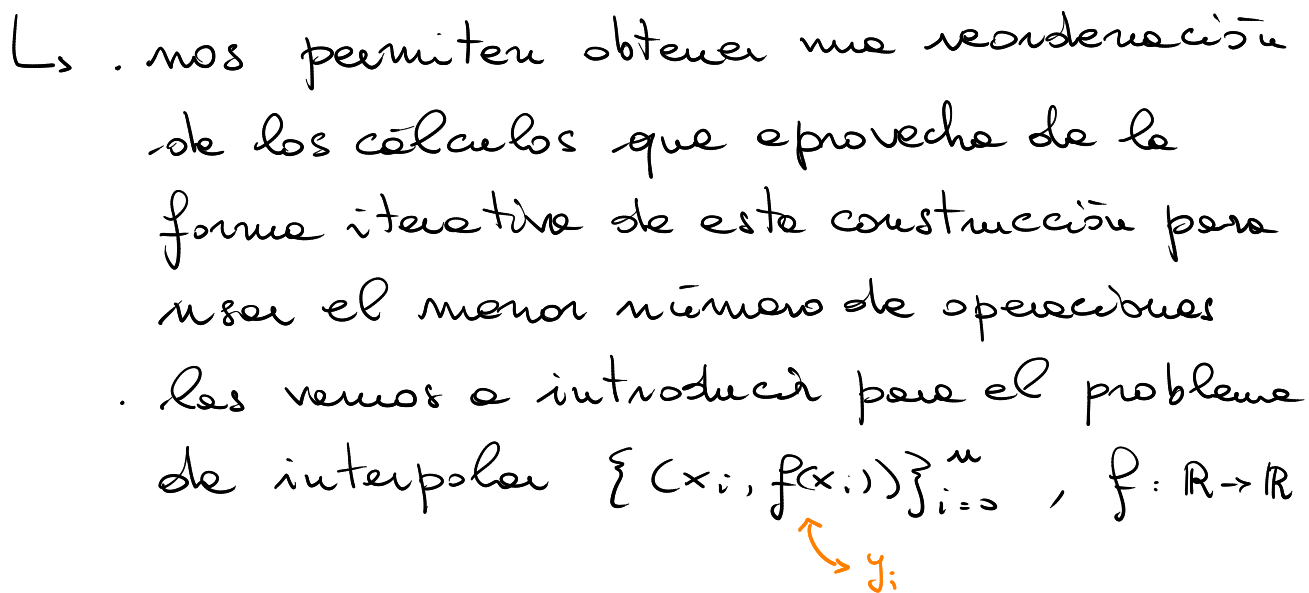 ↳ . nos permiten obtener una reordenación
de los cálculos que aprovecha de la
forma iterativa de esta construcción para
usar el menor número de operaciones
. las vamos a introducir para el problema
de interpolar {(xᵢ, f(xᵢ))}ⁿᵢ₌₀ , f : ℝ → ℝ
yᵢ